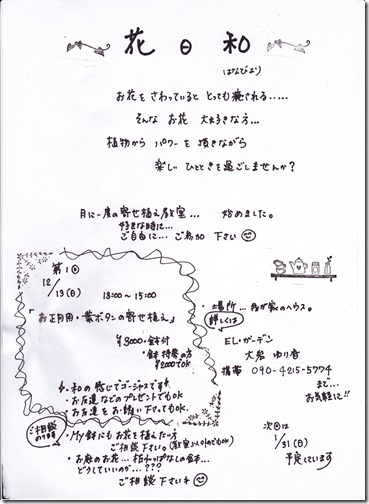 花日和
はなびより
お花を さわっていると とっても癒される・・・・・
そんな お花 大好きな方・・・
植物から パワーを 頂きながら
楽しい ひとときを過ごしませんか？
月に一度の寄せ植え教室・・・ 始めました。
好きな時に・・・
ご自由に・・・ ご参加 下さい
第1回
12/13(日)
13:00〜15:00
「お正月用・葉ボタンの寄せ植え」
¥3000・鉢付
・鉢持参の方
¥2000でOK
・お友達などのプレゼントでもOK
・お友達を お誘い下さってもOK
ご相談
のります
・My鉢にもお花を植えたい方
ご相談下さい。
・お庭のお花・・・ 植わっぱなしの鉢・・・
どうしていいのか・・・???
ご相談 下さいネ
・場所・・・我が家のハウス。
詳しくは
EL・ガーデン
大岩 ゆり香
携帯 090-4215-5774
まで・・・
お気軽に!!
次回は
1/31(日)
予定しています